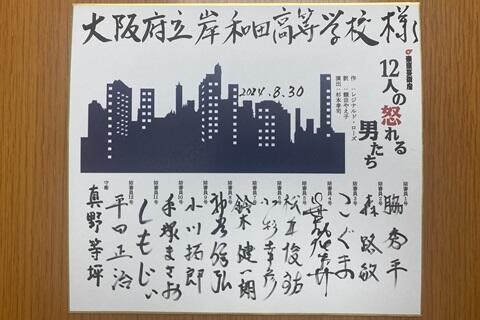 大阪府立岸和田高等学校 様
12人の怒れる
男たち
作:レジナルド・ローズ
訳:額田やえ子
演出:杉本孝司
2024.8.30
陪審員1号
脇秀平
陪審員2号
森路敏
陪審員3号
こぐま
陪審員4号
陪審員5号
陪審員6号
陪審員7号
鈴木健一朗
陪審員8号
陪審員9号
小川拓郎
陪審員10号
手塚まさお
陪審員11号
しもじぃ
陪審員12号
平田正治
守衛
真野等坪